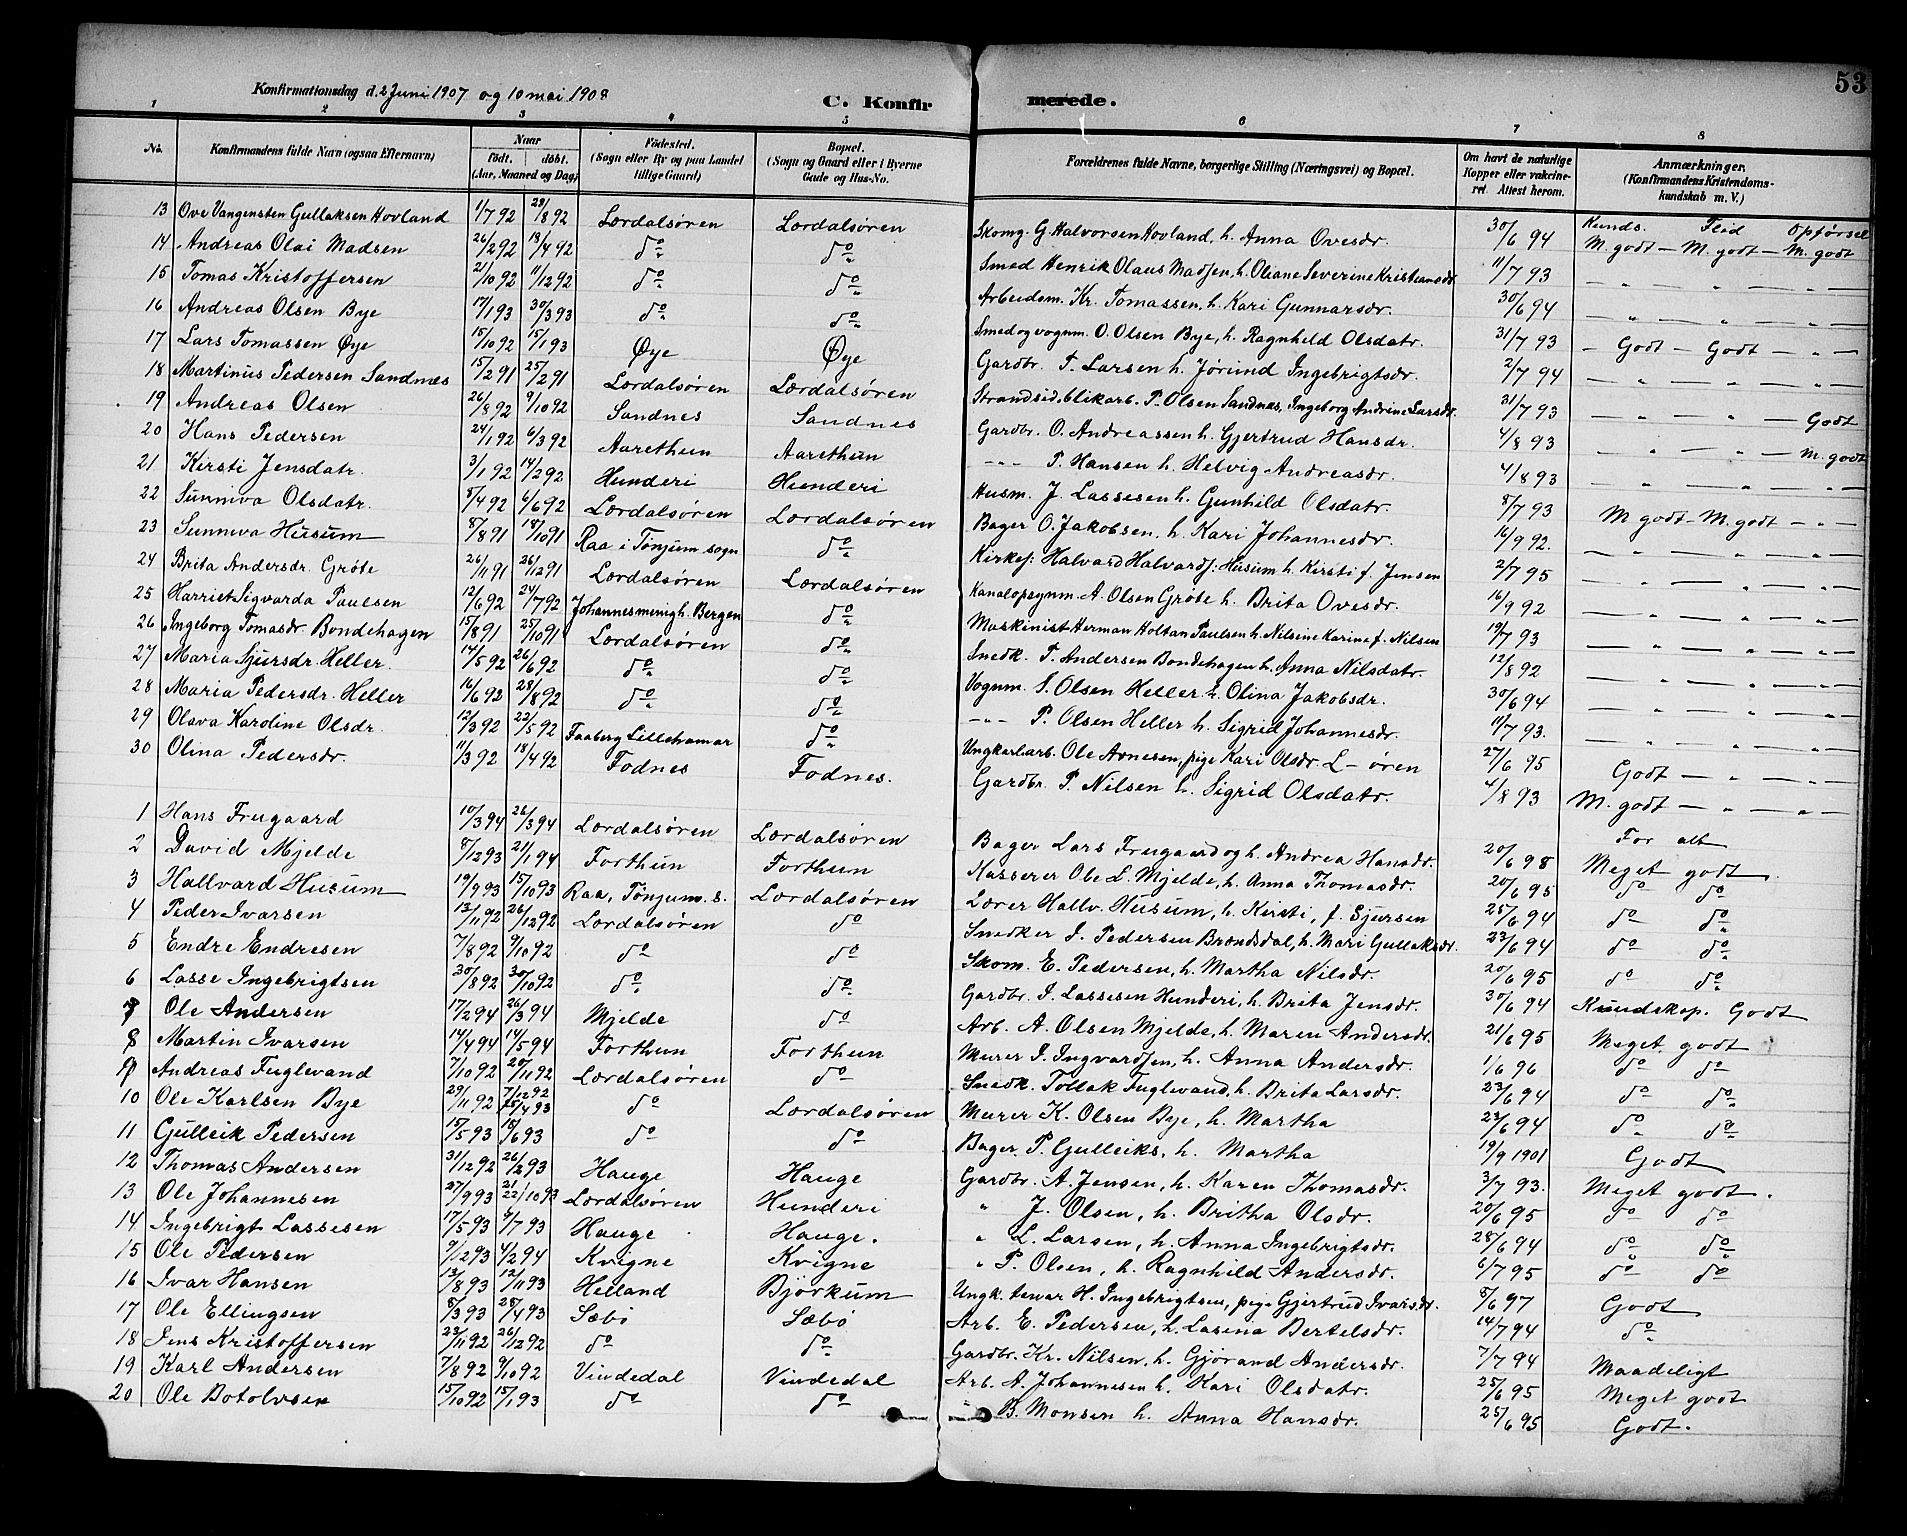 53
Konfirmationsdag d. 2 Juni 1907 og 10 mai 1908
C. Konfirmerede.
1 2 3 4 5 6 7 8
No. | Konfirmandens fulde Navn (ogsaa Efternavn) | Naar født. døbt. (Aar, Maaned og Dag) | Fødested. (Sogn eller By og paa Landet tillige Gaard) | Bopæl. (Sogn og Gaard eller i Byerne Gade og Hus-No. | Forældrenes fulde Navne, borgerlige Stilling (Næringsvei) og Bopæl. | Om havt de naturlige Kopper eller vakcineret. Attest herom. | Anmærkninger. (Konfirmandens Kristendomskundskab m. V.)
Kunds. Flid Opførsel
13 Ove Vangensten Gullaksen Hovland 1/7 92 28/8 92 Lærdalsøren Lærdalsøren Skomg. G. Halvorsen Hovland, h. Anna Ovesdr. 30/6 94 M. godt – M. godt – M. godt
14 Andreas Olai Madsen 26/2 92 13/4 92 do do Smed Henrik Olaus Madsen, h. Oliane Severine Kristiansdr 11/7 93 — „ — „ — „ —
15 Tomas Kristoffersen 21/10 92 11/12 92 do do Arbeidsm. Kr. Tomassen, h. Kari Gunnarsdr. 30/6 94 — „ — „ — „ —
16 Andreas Olsen Bye 17/1 93 30/3 93 do do Smed og vognm. O. Olsen Bye, h. Ragnhild Olsdatr. 31/7 93 – Godt – Godt – „ –
17 Lars Tomassen Øye 15/10 92 15/1 93 Øye Øye Gardbr. T. Larsen h. Jørund Ingebrigtsdr. 2/7 94 — „ — „ — „ —
18 Martinus Pedersen Sandnes 15/2 91 25/2 91 Lærdalsøren Lærdalsøren Strandsid. blikarb. P. Olsen Sandnes, Ingeborg Andrine Larsdr. 31/7 93 — „ — „ — Godt
19 Andreas Olsen 26/8 92 9/10 92 Sandnes Sandnes Gardbr. O. Andreassen h. Gjertrud Hansdr. 4/8 93 — „ — „ — M. godt
20 Hans Pedersen 24/1 92 6/3 92 Aarethun Aarethun –„– P. Hansen h. Helvig Andreasdr. 4/8 93 — „ — „ — „ —
21 Kirsti Jensdatr. 3/1 92 14/2 92 Hunderi Hunderi Husm. J. Lassesen h. Gunhild Olsdatr. 8/7 93 M. godt – M. godt – „ –
22 Sunniva Olsdatr. 5/4 92 6/6 92 Lærdalsøren Lærdalsøren Bager O. Jakobsen, h. Kari Johannesdr. 16/9 92. — „ — „ — „ —
23 Sunniva Husum 8/8 91 18/10 91 Raa i Tønjum sogn do Kirkesj. Halvard Halvardsj. Husum h. Kirsti f. Jensen 2/7 95 — „ — „ — „ —
24 Brita Andersdr. Grøte 26/11 91 26/12 91 Lærdalsøren Lærdalsøren Kanalopsynm. A. Olsen Grøte h. Brita Ovesdr. 16/9 92 — „ — „ — „ —
25 Harriet Sigvarda Paulsen 12/6 92 24/7 92 Johannesmenigh. Bergen do Maskinist Herman Holtan Paulsen h. Nilsine Karine f. Nilsen 19/7 93 — „ — „ — „ —
26 Ingeborg Tomasdr. Bondehagen 15/8 91 25/10 91 Lærdalsøren do Snedk. T. Andersen Bondehagen h. Anna Nilsdatr. 12/8 92 — „ — „ — „ —
27 Maria Sjursdr. Heller. 14/5 92 26/6 92 do do Vognm. S. Olsen Heller h. Olina Jakobsdr. 30/6 94 — „ — „ — „ —
28 Maria Pedersdr. Heller 16/6 92 28/8 92 do do –„– P. Olsen Heller h. Sigrid Johannesdr. 11/7 93. — „ — „ — „ —
29 Olava Karoline Olsdr. 12/3 92 22/5 92 Faaberg Lillehamar do Ungkarlarb. Ole Arnesen, pige Kari Olsdr. L–øren 27/6 95 Godt — „ — „ —
30 Olina Pedersdr. 11/3 92 18/4 92 Fodnes Fodnes. Gardbr. P. Nilsen h. Sigrid Olsdatr. 4/8 93 M. godt — „ — „ —
For alt
1 Hans Frugaard 10/3 94 26/3 94 Lærdalsøren Lærdalsøren Bager Lars Frugaard og h. Andrea Hansdr. 20/6 98 Meget godt.
2 David Mjelde 8/12 93 21/1 94 Forthun Forthun Kasserer Ole L. Mjelde, h. Anna Thomasdr. 20/6 95 do do
3 Hallvard Husum 19/9 93 15/10 93 Raa, Tønjum. s. Lærdalsøren Lærer Hallv. Husum, h. Kirsti, f. Sjursen 25/6 94 do do
4 Peder Ivarsen 13/11 92 26/12 92 Lærdalsøren do Snedker I. Pedersen Brændsdal, h. Mari Gullaksdr. 23/6 94 do do
5 Endre Endresen 7/8 92 9/10 92 do do Skom. E. Pedersen, h. Martha Nilsdr. 20/6 95 do do
6 Lasse Ingebrigtsen 30/8 92 30/10 92 do do Gardbr. I. Lassesen Hunderi, h. Brita Jensdr. 30/6 94 Kundskap. Godt
7 Ole Andersen 17/2 94 26/3 94 Mjelde do Arb. A. Olsen Mjelde, h. Maren Andersdr. 21/6 95 Meget godt
8 Martin Ivarsen 14/4 94 14/5 94 Forthun Forthun Murer I. Ingvardsen, h. Anna Andersdr. 1/6 96 do do
9 Andreas Fuglevand 7/10 92 20/11 92 Lærdalsøren do Snedk. Tollak Fuglevand, h. Brita Larsdr. 23/6 94 do do
10 Ole Karlsen Bye 29/11 92 7/12 92 25/4 93 do Lærdalsøren Murer K. Olsen Bye, h. Martha 23/6 94 do do
11 Gulleik Pedersen 15/5 93 18/6 93 do do Bager P. Gulleiks, h. Martha 19/9 1901 Godt
12 Thomas Andersen 31/12 92 26/2 93 Hauge Hauge Gardbr. A. Jensen, h. Karen Thomasdr. 3/7 93. Meget godt.
13 Ole Johannesen 27/9 93 21/22/10 93 Lærdalsøren Hunderi „ J. Olsen, h. Britha Olsdr. 20/6 95 do do
14 Ingebrigt Lassesen 17/5 93 9/7 93 Hauge Hauge. „ L. Larsen, h. Anna Ingebrigtsdr. 28/6 94 do do
15 Ole Pedersen 9/12 93 4/2 94 Kvigne Kvigne „ P. Olsen, h. Ragnhild Andersdr. 6/7 95 do do
16 Ivar Hansen 13/8 93 12/11 93 Helland Bjørkum Ungk. tenar H. Ingebrigtsen, pige Gjertrud Ivarsdr. 8/6 97 Godt
17 Ole Ellingsen 8/3 93 28/4 93 Sæbø Sæbø Arb. E. Pedersen, h. Lasina Bertelsdr. 14/7 94 do
18 Jens Kristoffersen 23/11 92 26/12 92 do do Gardbr. Kr. Nilsen, h. Gjørand Andersdr. 7/7 94 Maadeligt
19 Karl Andersen 7/8 92 9/10 92 Vindedal Vindedal Arb. A. Johannesen h. Kari Olsdatr. 25/6 95 Meget godt
20 Ole Botolvsen 15/10 92 15/1 93 do do „ B. Monsen h. Anna Hansdr. 25/6 95 Godt.